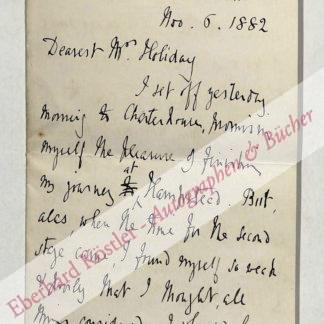 Nov. 6. 1882
Dearest Mrs Holiday
I set off yesterday
morning to Charterhouse, promising
myself the pleasure of finishing
my journey at Hampstead. But,
alas when the time for the second
stage came, I found myself so weak
that I thought, all
things considered, I
Eberhard Köstler Autographen & Bücher